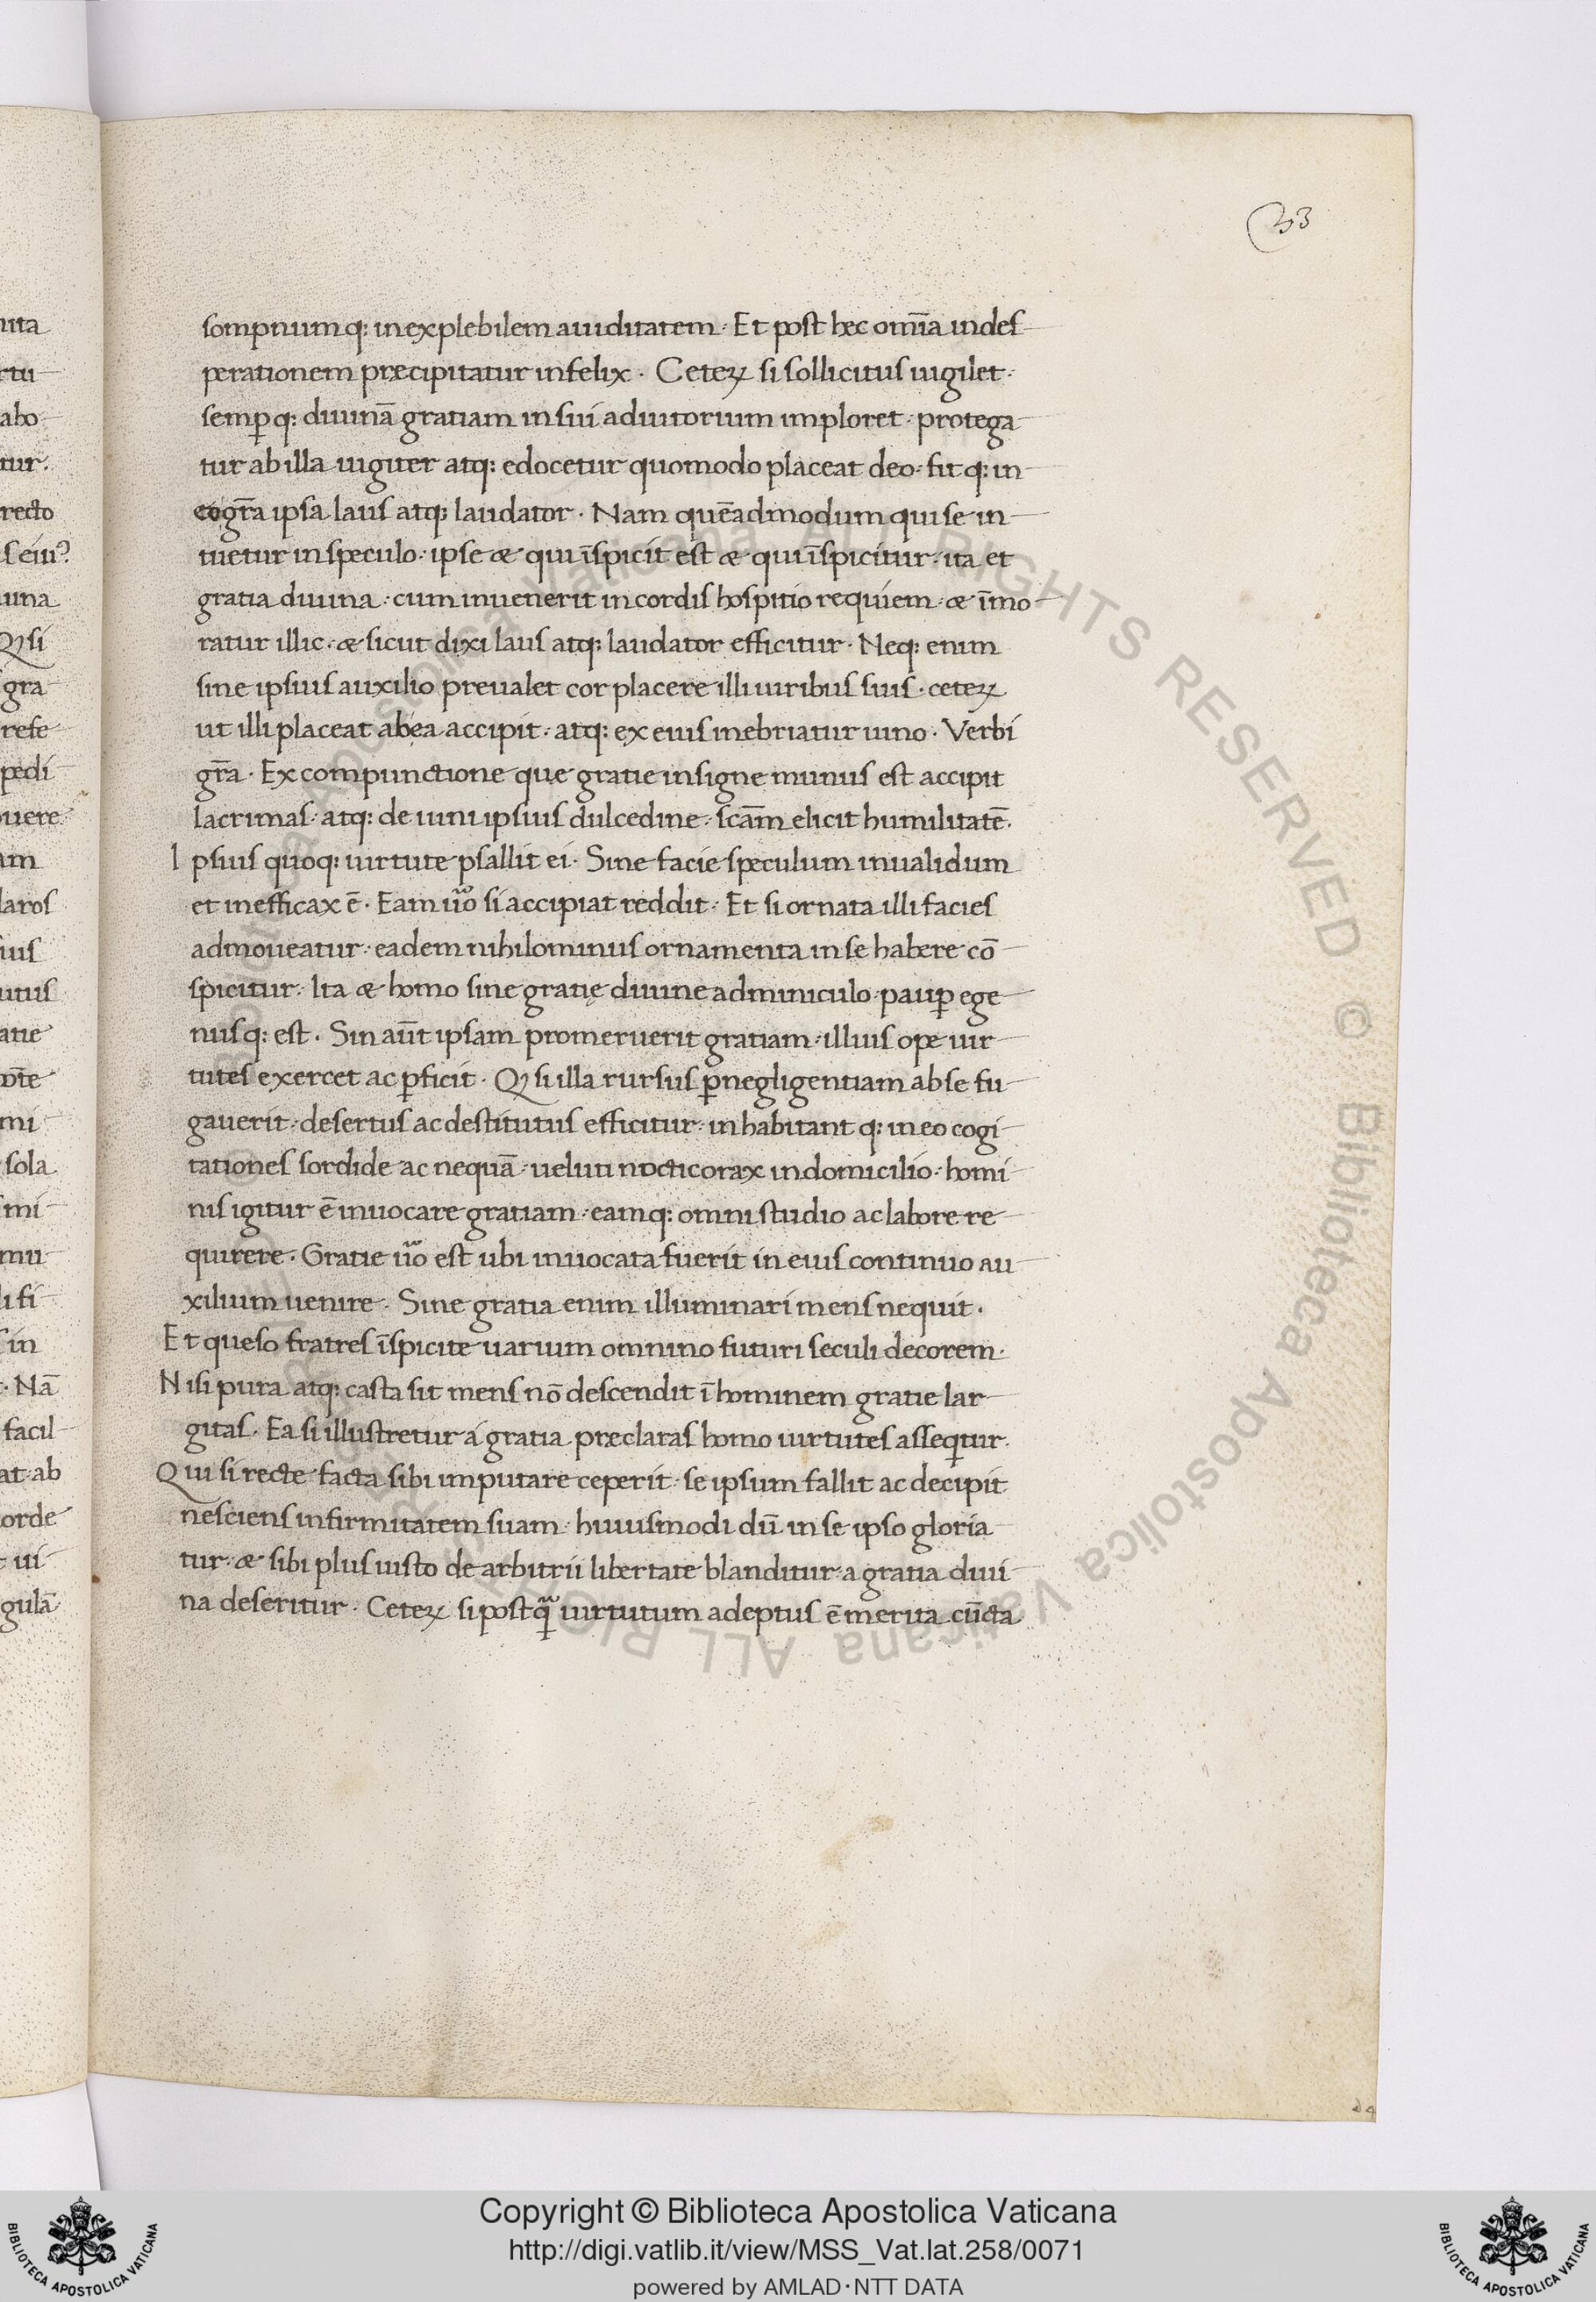 33
sompnumq: inexplebilem auiditatem · Et post hec om̄ia in des
perationem præcipitatur infelix · Ceteꝝ si sollicitus uigilet ·
semꝑq: diuinā gratiam in sui adiutorium imploret · protega
tur ab illa iugiter atq: edocetur quomodo placeat deo · fit q: in
eo gr̄a ipsa laus atq: laudator · Nam quēadmodum qui se in
tuetur in speculo · ipse æ qui īspicit est æ qui īspicitur · ita et
gratia diuina · cum inuenerit in cordis hospitio requiem · æ īmo
ratur illic · æ sicut dixi laus atq: laudator efficitur · Neq: enim
sine ipsius auxilio preualet cor placere illi uiribus suis · ceteꝝ
ut illi placeat ab ea accipit · atq: ex eius inebriatur uino · Verbi
gr̄a · Ex compunctione que gratie insigne munus est accipit
lacrimas · atq: de uini ipsius dulcedine · scām elicit humilitatē ·
Ipsius quoq: uirtute psallit ei · Sine facie speculum inualidum
et inefficax ē · Eam ūo si accipiat reddit · Et si ornata illi facies
admoueatur · eadem nihilominus ornamenta in se habere cō
spicitur · Ita æ homo sine gratię diuine adminiculo · pauꝑ ege
nusq: est · Sin aūt ipsam promeruerit gratiam · illius ope uir
tutes exercet ac ꝑficit · Qꝫ si illa rursus ꝑ negligentiam ab se fu
gauerit · desertus ac destitutus efficitur · inhabitant q: in eo cogi
tationes sordide ac nequā · ueluti nocticorax in domicilio · homi
nis igitur ē inuocare gratiam · eamq: omni studio ac labore re
quirere · Gratie ūo est ubi inuocata fuerit in eius continuo au
xilium uenire · Sine gratia enim illuminari mens nequit ·
Et queso fratres īspicite uarium omnino futuri seculi decorem ·
Nisi pura atq: casta sit mens nō descendit ī hominem gratie lar
gitas · Ea si illustretur á gratia præclaras homo uirtutes asseqtur ·
Qui si recte facta sibi imputare ceperit · se ipsum fallit ac decipit
nesciens infirmitatem suam · huiusmodi dū in se ipso gloria
tur · æ sibi plus iusto de arbitrii libertate blanditur · a gratia diui
na deseritur · Ceteꝝ si postq̄ uirtutum adeptus ē merita cūcta
Copyright © Biblioteca Apostolica Vaticana
http://digi.vatlib.it/view/MSS_Vat.lat.258/0071
powered by AMLAD·NTT DATA